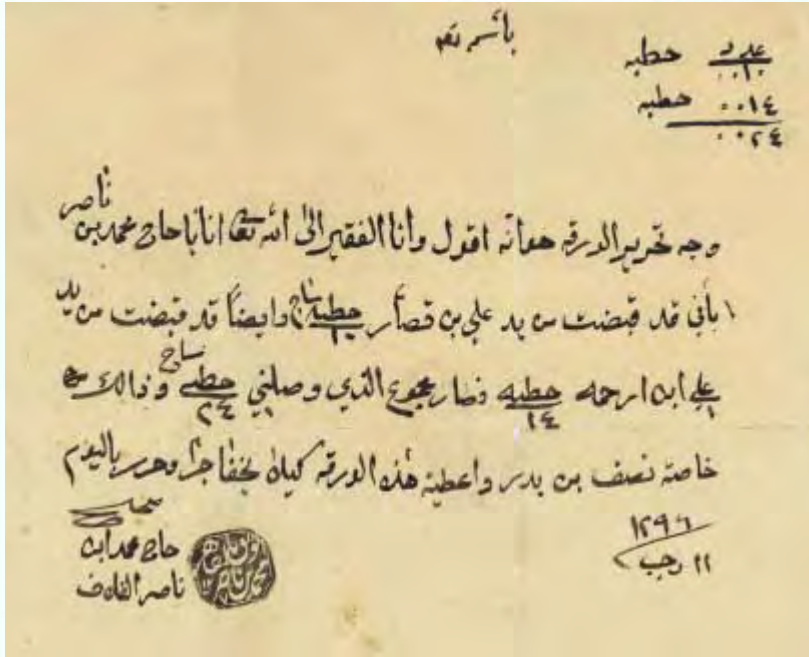 باسمه تعه
عدد
١٠٠٠ حطبه
٠٠١٤ حطبه
٠٠٢٤
وجه تحرير الورقه هوأنه اقول وأنا الفقير الى الله تعا انا يا حاج محمد بن ناصر
بأني قد قبضت من يد علي بن قصار حطبه ساج ١٠ وايضاً قد قبضت من يد
علي ابن ارحمه حطبه ١٤ فصار مجموع الذي وصلني حطبه ٢٤ ساج وذالك من
خاصة نصف بن بدر واعطيته هذه الورقه كيلا يخفا جرا وحرر باليوم
١٢٩٦
١١ رجب
صحيح
حاج محمد ابن
ناصر